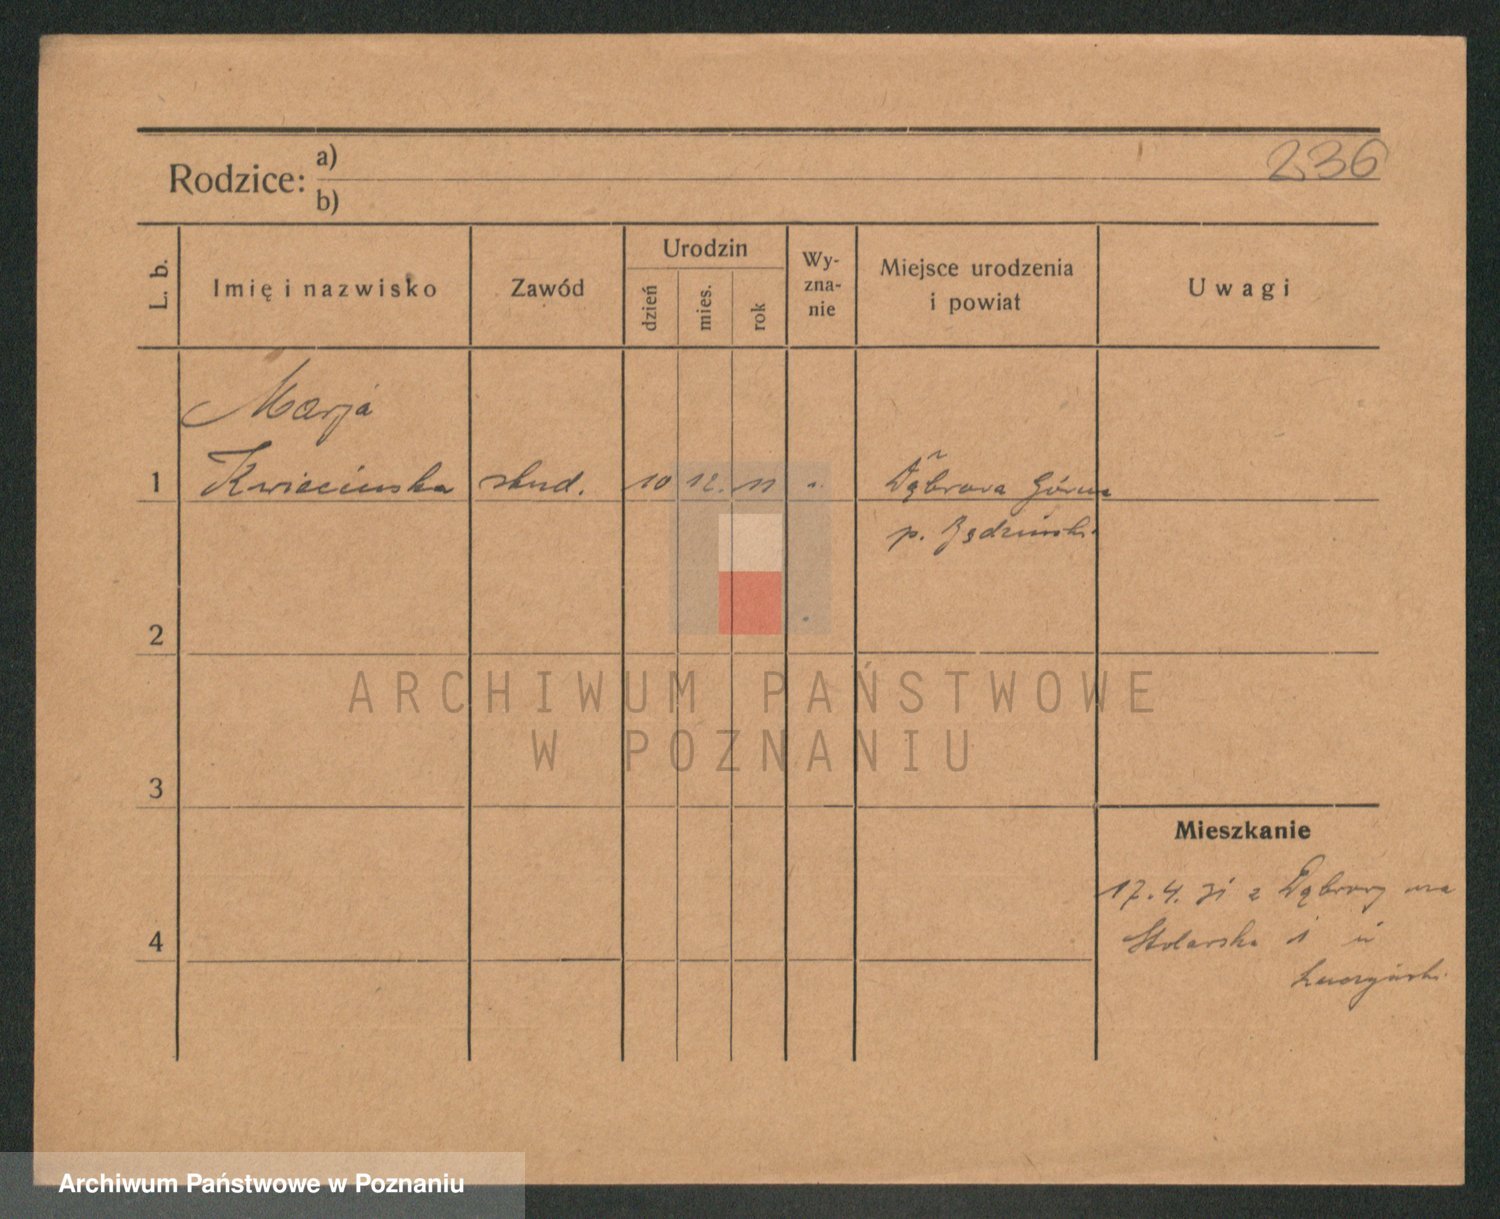 236
Rodzice: a)
b)
L. b.
Imię i nazwisko
Zawód
Urodzin
dzień
mies.
rok
Wy-
zna-
nie
Miejsce urodzenia
i powiat
Uwagi
Marja
1 Kwiecińska stud. 10 12. 11 Dąbrowa Górna
p. Będziński.
2
3
4
Mieszkanie
17.4. 31 z Dąbrowy na
Stolarska 1 u
ARCHIWUM PAŃSTWOWE
W POZNANIU
Archiwum Państwowe w Poznaniu